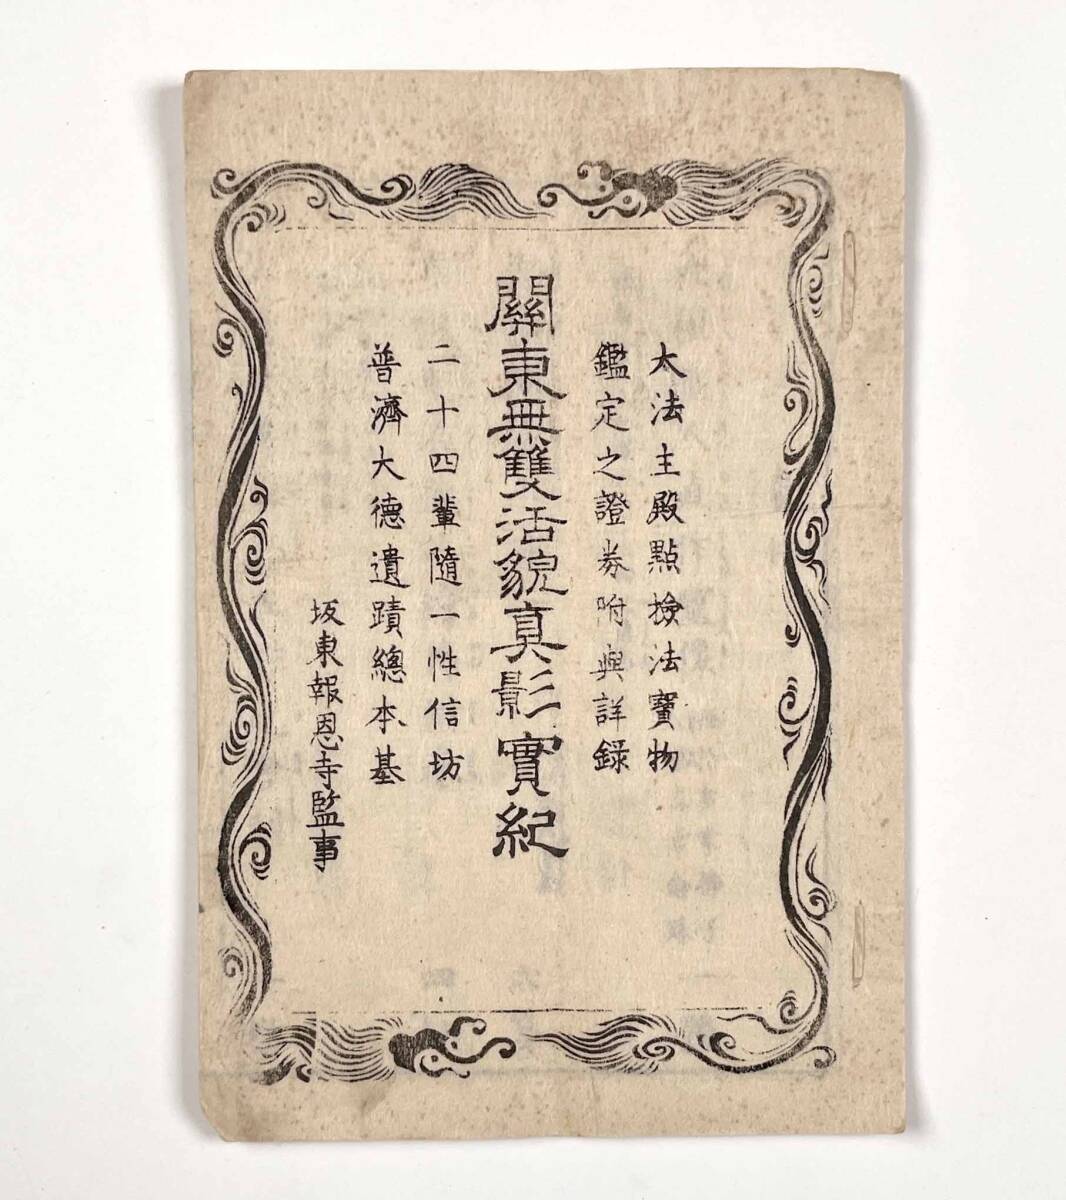 大法主殿點撿法寳物
鑑定之證券附與詳録
關東無雙活貌真影實紀
二十四輩隨一性信坊
普濟大德遺蹟總本基
坂東報恩寺監事